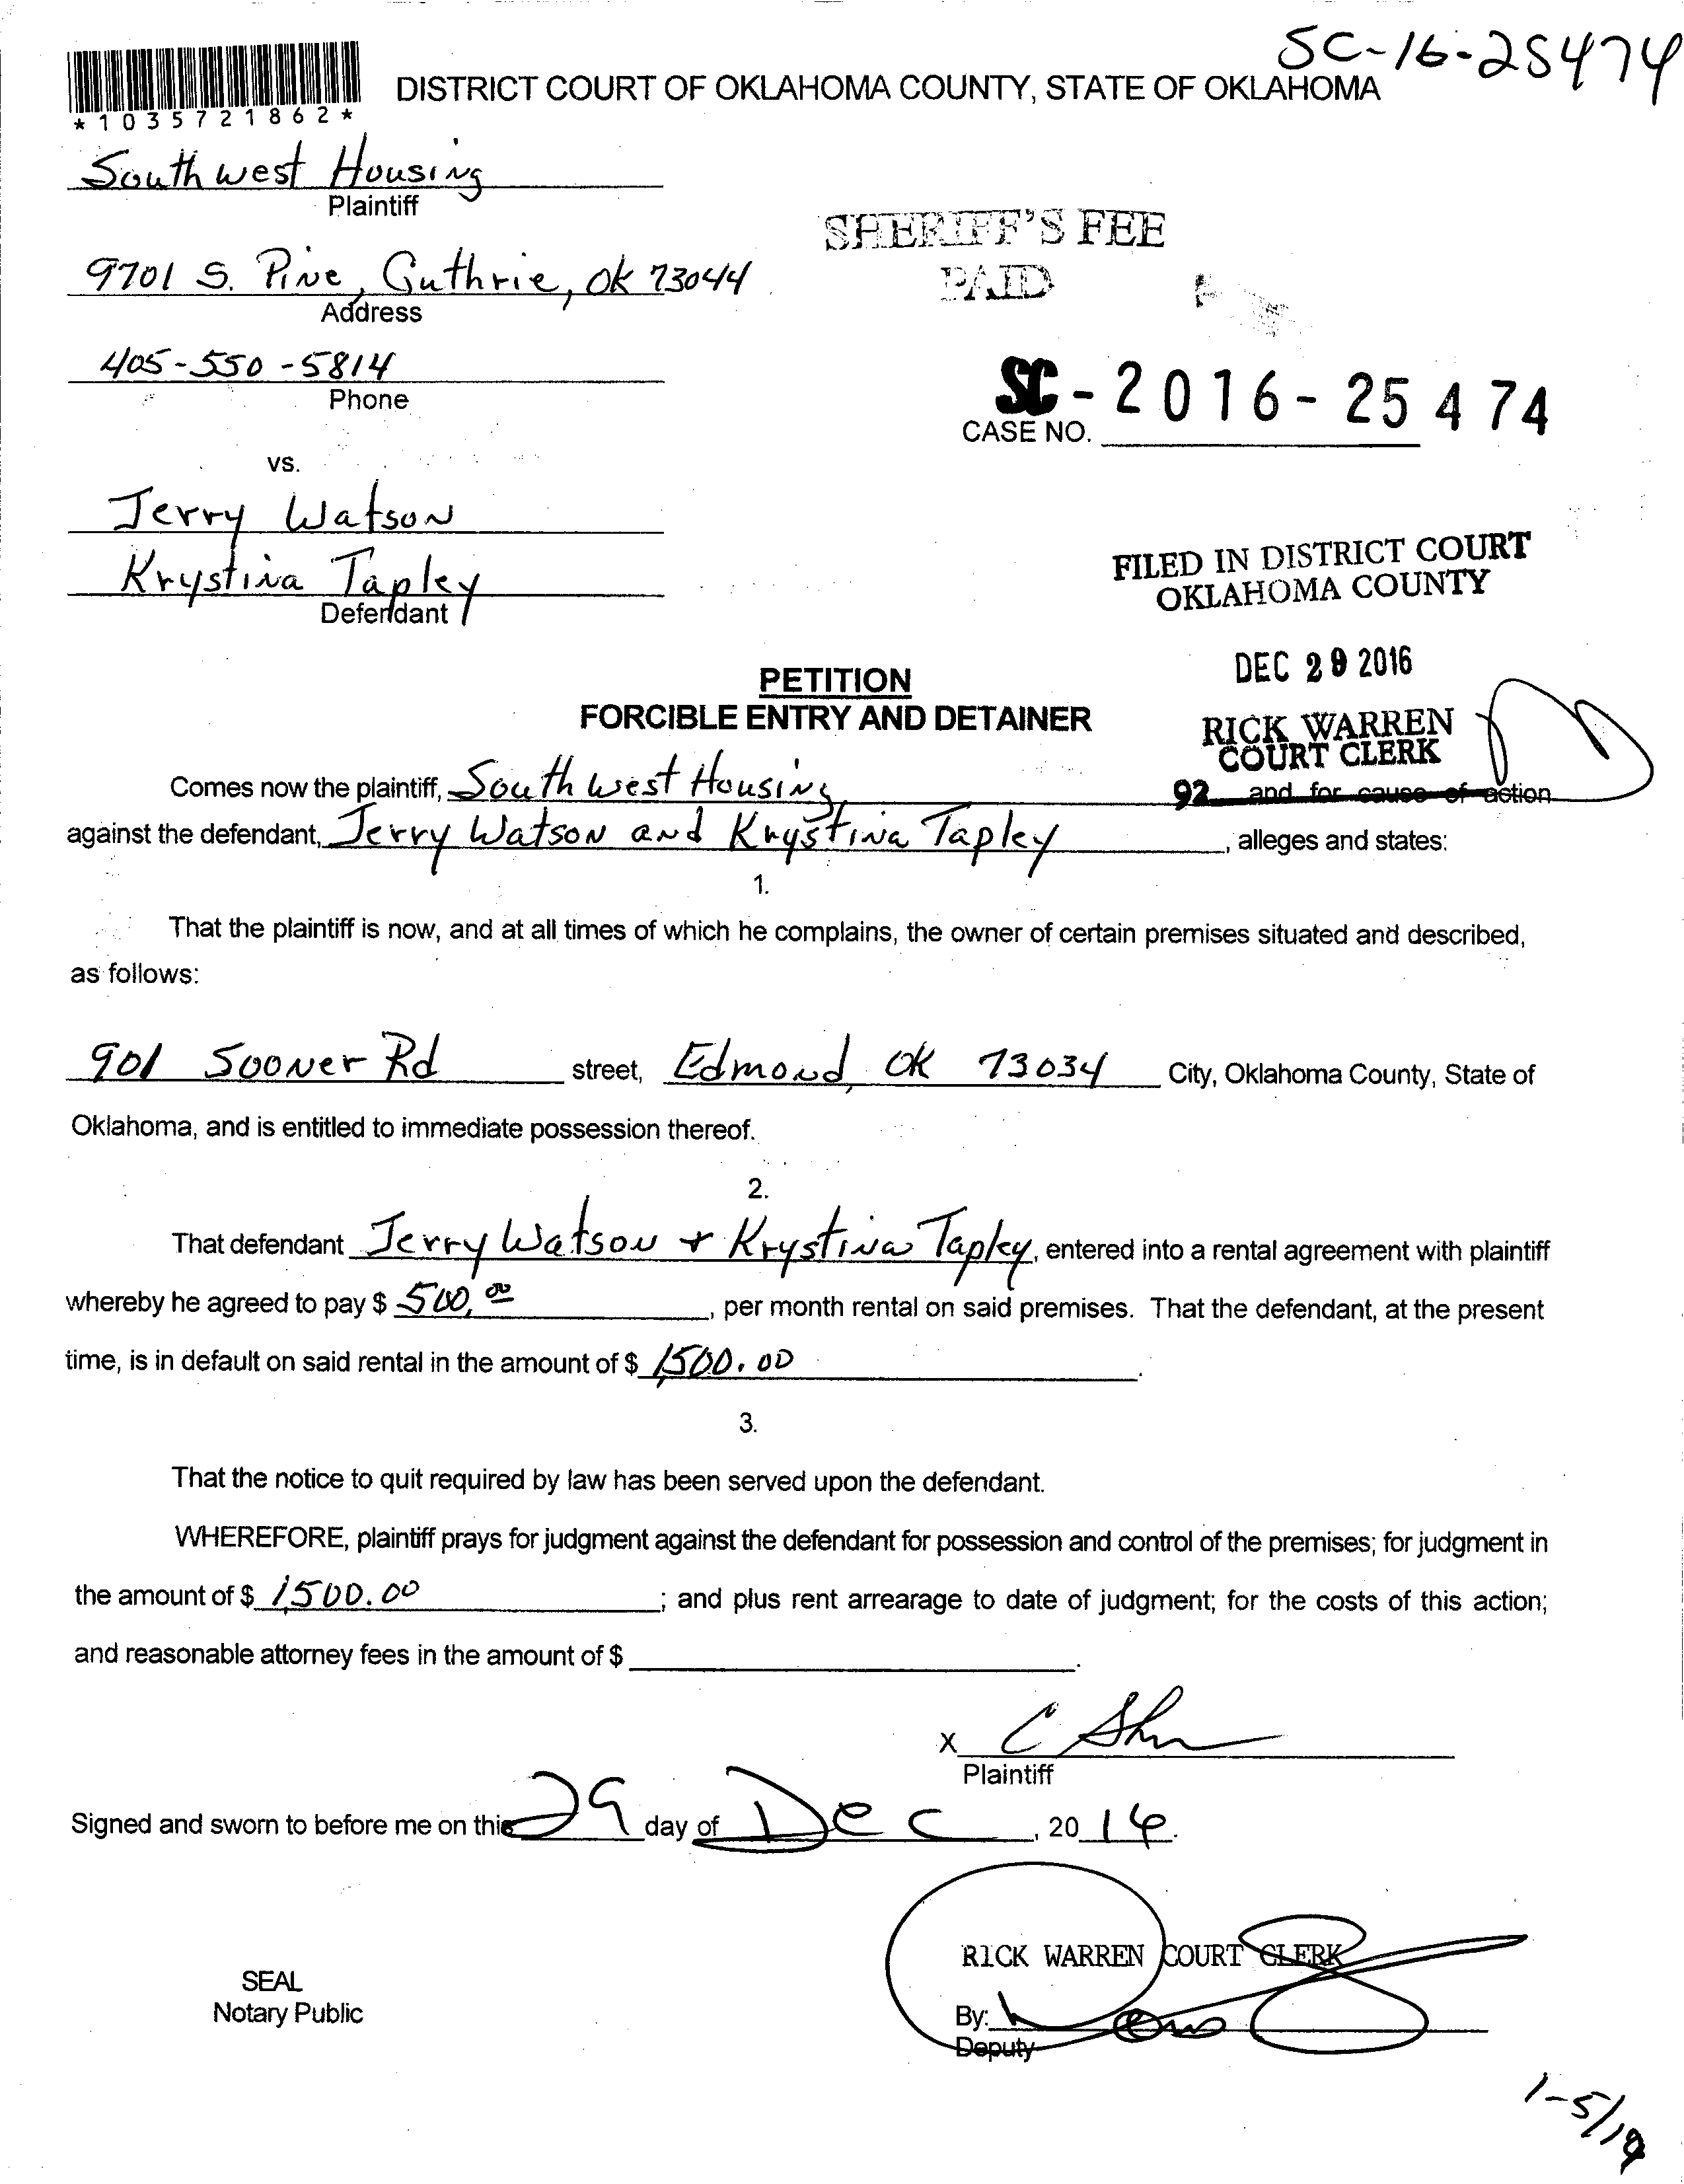 SC-16-25474
*1035721862*
DISTRICT COURT OF OKLAHOMA COUNTY, STATE OF OKLAHOMA
Southwest Housing
Plaintiff
SHERIFF'S FEE
PAID
9701 S. Pine, Guthrie, OK 73044
Address
405-550-5814
Phone
SC-2016-25474
CASE NO.
vs.
Jerry Watson
Krystina Tapley
Defendant
FILED IN DISTRICT COURT
OKLAHOMA COUNTY
DEC 29 2016
RICK WARREN
COURT CLERK
PETITION
FORCIBLE ENTRY AND DETAINER
Comes now the plaintiff, Southwest Housing 92 and for cause of action
against the defendant, Jerry Watson and Krystina Tapley, alleges and states:
1.
That the plaintiff is now, and at all times of which he complains, the owner of certain premises situated and described,
as follows:
901 Sooner Rd street, Edmond, OK 73034 City, Oklahoma County, State of
Oklahoma, and is entitled to immediate possession thereof.
2.
That defendant Jerry Watson + Krystina Tapley, entered into a rental agreement with plaintiff
whereby he agreed to pay $ 500.00, per month rental on said premises. That the defendant, at the present
time, is in default on said rental in the amount of $ 1,500.00.
3.
That the notice to quit required by law has been served upon the defendant.
WHEREFORE, plaintiff prays for judgment against the defendant for possession and control of the premises; for judgment in
the amount of $ 1,500.00; and plus rent arrearage to date of judgment; for the costs of this action;
and reasonable attorney fees in the amount of $
X C
Plaintiff
Signed and sworn to before me on this 29 day of Dec, 2016.
RICK WARREN COURT CLERK
SEAL
Notary Public
By:
Deputy